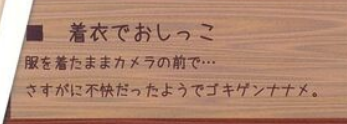 ■ 着衣でおしっこ
服を着たままカメラの前で…
さすがに不快だったようでゴキゲンナナメ。